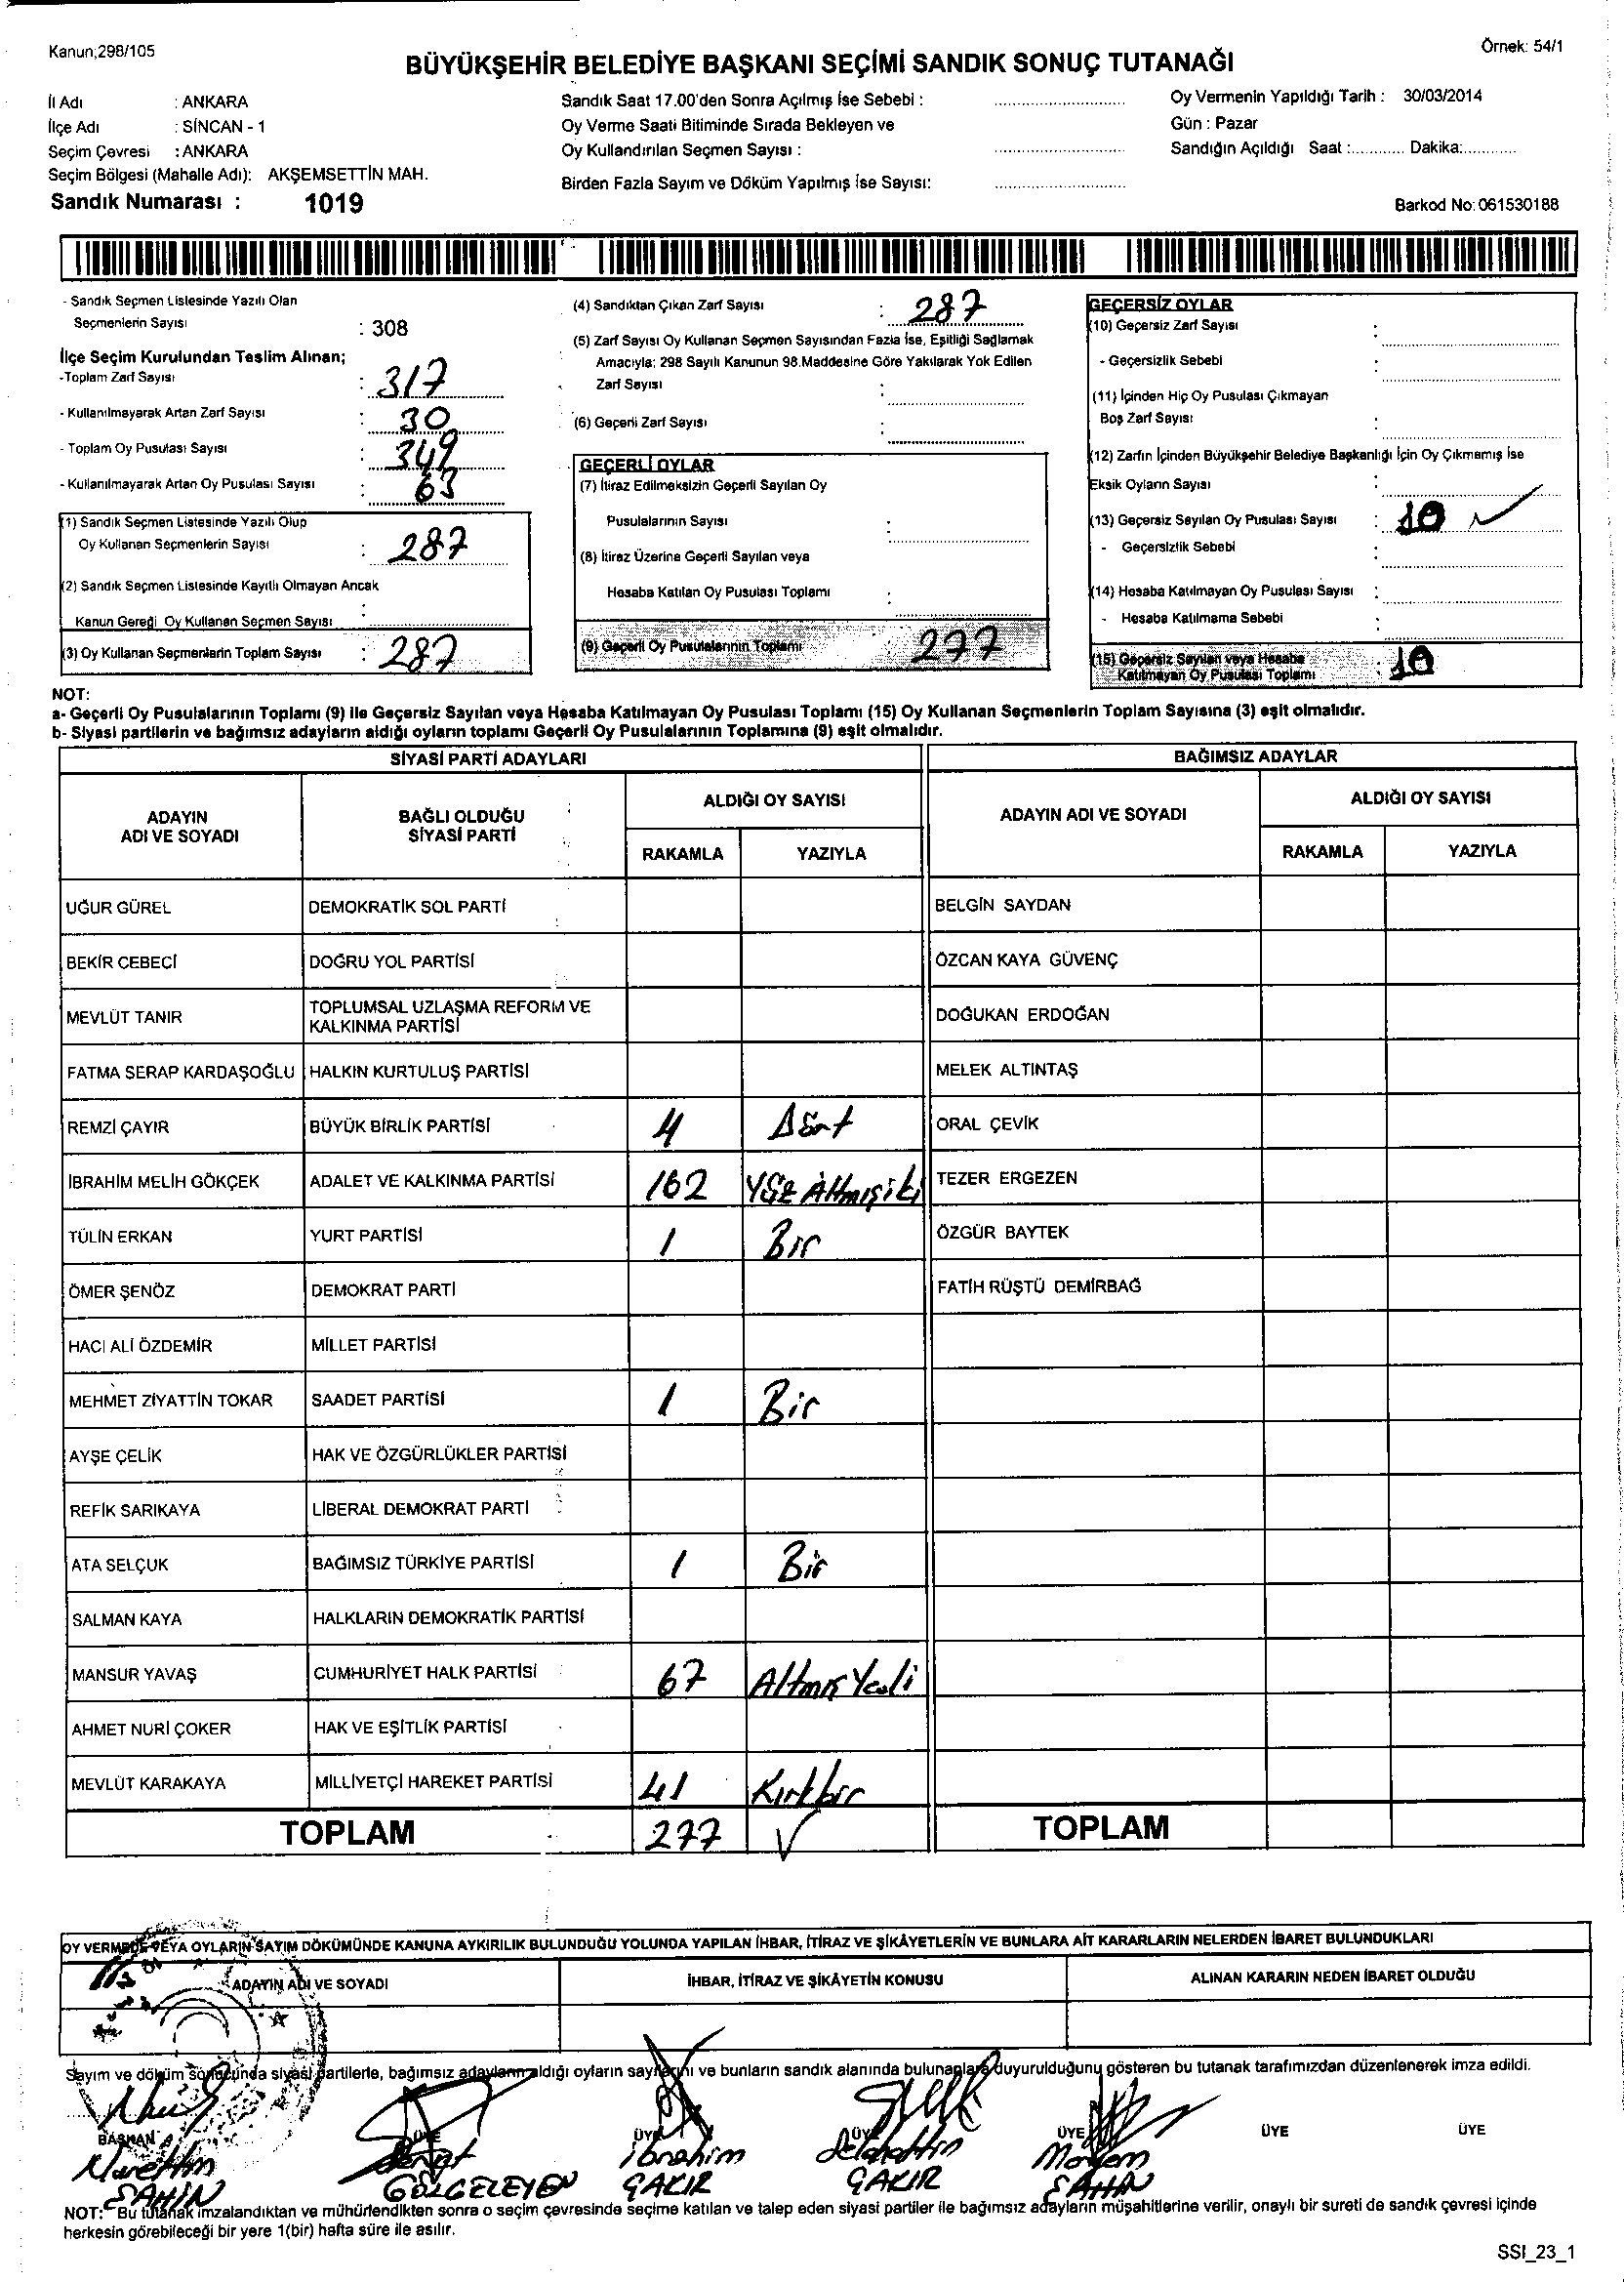 Kanun;298/105
Örnek: 54/1
BÜYÜKŞEHİR BELEDİYE BAŞKANI SEÇİMİ SANDIK SONUÇ TUTANAĞI
İl Adı : ANKARA
İlçe Adı : SİNCAN - 1
Seçim Çevresi : ANKARA
Seçim Bölgesi (Mahalle Adı): AKŞEMSETTİN MAH.
Sandık Numarası : 1019
Sandık Saat 17.00'den Sonra Açılmış İse Sebebi :
Oy Verme Saati Bitiminde Sırada Bekleyen ve
Oy Kullandırılan Seçmen Sayısı :
Birden Fazla Sayım ve Döküm Yapılmış İse Sayısı:
Oy Vermenin Yapıldığı Tarih : 30/03/2014
Gün : Pazar
Sandığın Açıldığı Saat :............ Dakika:............
Barkod No:061530188
- Sandık Seçmen Listesinde Yazılı Olan
Seçmenlerin Sayısı : 308
İlçe Seçim Kurulundan Teslim Alınan;
-Toplam Zarf Sayısı : 317
- Kullanılmayarak Artan Zarf Sayısı : 30
- Toplam Oy Pusulası Sayısı : 349
- Kullanılmayarak Artan Oy Pusulası Sayısı : 63
(1) Sandık Seçmen Listesinde Yazılı Olup
Oy Kullanan Seçmenlerin Sayısı : 287
(2) Sandık Seçmen Listesinde Kayıtlı Olmayan Ancak
Kanun Gereği Oy Kullanan Seçmen Sayısı :
(3) Oy Kullanan Seçmenlerin Toplam Sayısı : 287
(4) Sandıktan Çıkan Zarf Sayısı : 287
(5) Zarf Sayısı Oy Kullanan Seçmen Sayısından Fazla İse, Eşitliği Sağlamak
Amacıyla; 298 Sayılı Kanunun 98.Maddesine Göre Yakılarak Yok Edilen
Zarf Sayısı :
(6) Geçerli Zarf Sayısı :
GEÇERLİ OYLAR
(7) İtiraz Edilmeksizin Geçerli Sayılan Oy
Pusulalarının Sayısı :
(8) İtiraz Üzerine Geçerli Sayılan veya
Hesaba Katılan Oy Pusulası Toplamı :
(9) Geçerli Oy Pusulalarının Toplamı : 277
GEÇERSİZ OYLAR
(10) Geçersiz Zarf Sayısı :
- Geçersizlik Sebebi :
(11) İçinden Hiç Oy Pusulası Çıkmayan
Boş Zarf Sayısı :
(12) Zarfın İçinden Büyükşehir Belediye Başkanlığı İçin Oy Çıkmamış İse
Eksik Oyların Sayısı :
(13) Geçersiz Sayılan Oy Pusulası Sayısı : 10 ✓
- Geçersizlik Sebebi :
(14) Hesaba Katılmayan Oy Pusulası Sayısı :
- Hesaba Katılmama Sebebi :
(15) Geçersiz Sayılan veya Hesaba
Katılmayan Oy Pusulası Toplamı : 10
NOT:
a- Geçerli Oy Pusulalarının Toplamı (9) ile Geçersiz Sayılan veya Hesaba Katılmayan Oy Pusulası Toplamı (15) Oy Kullanan Seçmenlerin Toplam Sayısına (3) eşit olmalıdır.
b- Siyasi partilerin ve bağımsız adayların aldığı oyların toplamı Geçerli Oy Pusulalarının Toplamına (9) eşit olmalıdır.
SİYASİ PARTİ ADAYLARI
BAĞIMSIZ ADAYLAR
ADAYIN ADI VE SOYADI
BAĞLI OLDUĞU SİYASİ PARTİ
ALDIĞI OY SAYISI
RAKAMLA YAZIYLA
ADAYIN ADI VE SOYADI
ALDIĞI OY SAYISI
RAKAMLA YAZIYLA
UĞUR GÜREL DEMOKRATİK SOL PARTİ BELGİN SAYDAN
BEKİR CEBECİ DOĞRU YOL PARTİSİ ÖZCAN KAYA GÜVENÇ
MEVLÜT TANIR TOPLUMSAL UZLAŞMA REFORM VE KALKINMA PARTİSİ DOĞUKAN ERDOĞAN
FATMA SERAP KARDAŞOĞLU HALKIN KURTULUŞ PARTİSİ MELEK ALTINTAŞ
REMZİ ÇAYIR BÜYÜK BİRLİK PARTİSİ 4 Dört ORAL ÇEVİK
İBRAHİM MELİH GÖKÇEK ADALET VE KALKINMA PARTİSİ 162 Yüz Altmışiki TEZER ERGEZEN
TÜLİN ERKAN YURT PARTİSİ 1 Bir ÖZGÜR BAYTEK
ÖMER ŞENÖZ DEMOKRAT PARTİ FATİH RÜŞTÜ DEMİRBAĞ
HACI ALİ ÖZDEMİR MİLLET PARTİSİ
MEHMET ZİYATTİN TOKAR SAADET PARTİSİ 1 Bir
AYŞE ÇELİK HAK VE ÖZGÜRLÜKLER PARTİSİ
REFİK SARIKAYA LİBERAL DEMOKRAT PARTİ
ATA SELÇUK BAĞIMSIZ TÜRKİYE PARTİSİ 1 Bir
SALMAN KAYA HALKLARIN DEMOKRATİK PARTİSİ
MANSUR YAVAŞ CUMHURİYET HALK PARTİSİ 67 Altmış Yedi
AHMET NURİ ÇOKER HAK VE EŞİTLİK PARTİSİ
MEVLÜT KARAKAYA MİLLİYETÇİ HAREKET PARTİSİ 41 Kırkbir
TOPLAM 277 ✓ TOPLAM
OY VERMEDE VEYA OYLARIN SAYIM DÖKÜMÜNDE KANUNA AYKIRILIK BULUNDUĞU YOLUNDA YAPILAN İHBAR, İTİRAZ VE ŞİKÂYETLERİN VE BUNLARA AİT KARARLARIN NELERDEN İBARET BULUNDUKLARI
ADAYIN ADI VE SOYADI İHBAR, İTİRAZ VE ŞİKÂYETİN KONUSU ALINAN KARARIN NEDEN İBARET OLDUĞU
Sayım ve döküm sonucunda siyasi partilerle, bağımsız adayların aldığı oyların sayılarını ve bunların sandık alanında bulunanlara duyurulduğunu gösteren bu tutanak tarafımızdan düzenlenerek imza edildi.
BAŞKAN ÜYE ÜYE ÜYE ÜYE ÜYE ÜYE
Nurettin İbrahim Selahattin Meryem
ŞAHİN GÖLGELEYEN ÇAKIR ÇAKIR ŞAHİN
NOT: Bu tutanak imzalandıktan ve mühürlendikten sonra o seçim çevresinde seçime katılan ve talep eden siyasi partiler ile bağımsız adayların müşahitlerine verilir, onaylı bir sureti de sandık çevresi içinde
herkesin görebileceği bir yere 1(bir) hafta süre ile asılır.
SSI_23_1